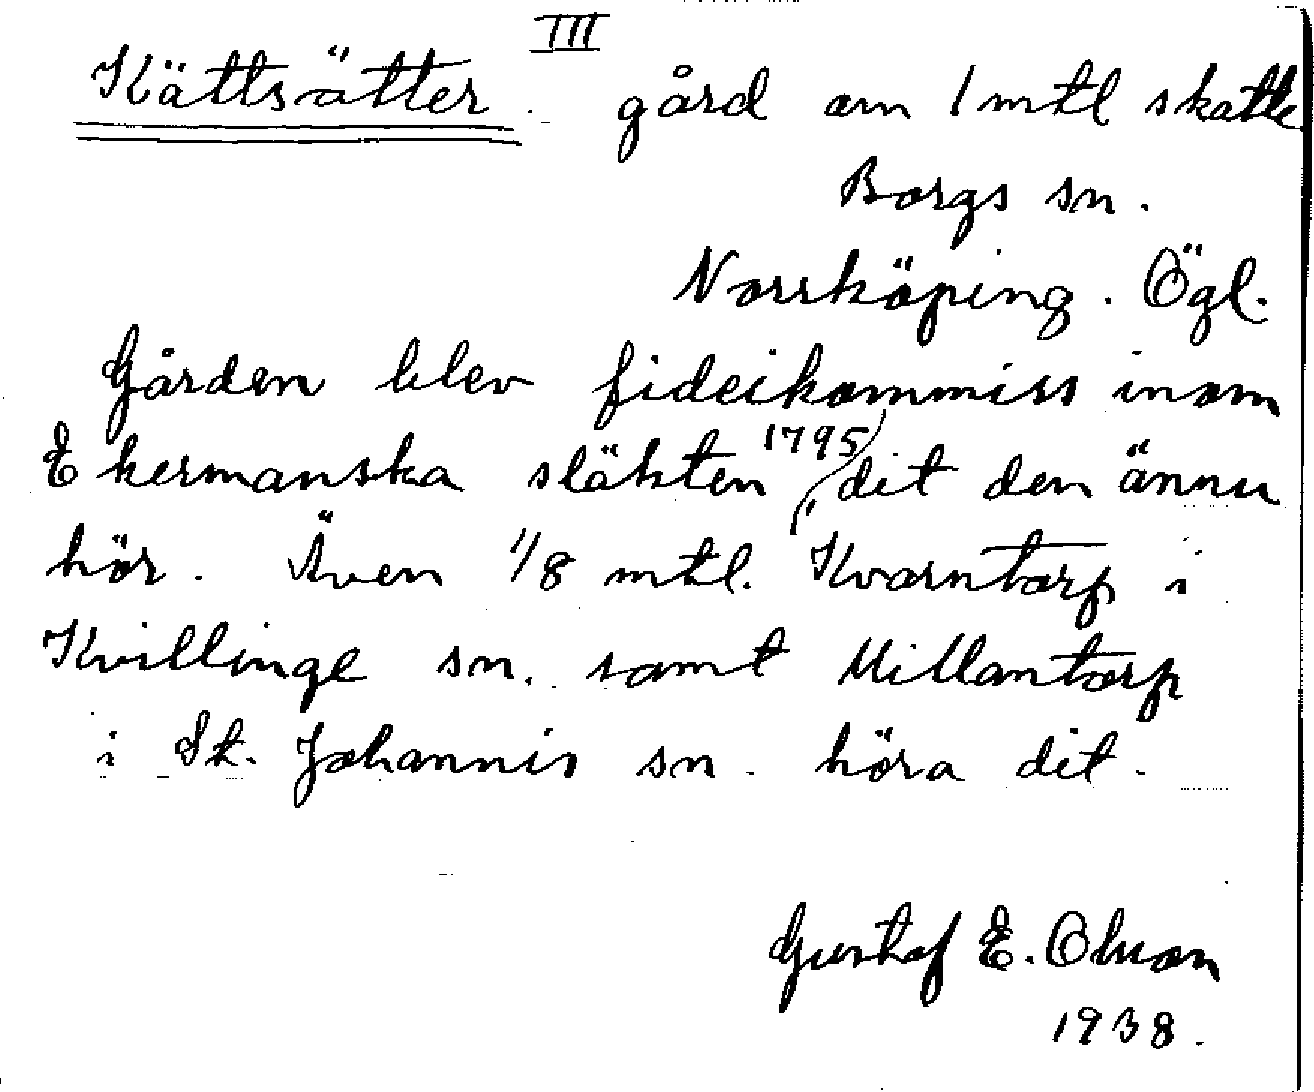 III
Kättsätter. gård om 1 mtl skatte
Borgs sn.
Norrköping. Ögl.
Gården blev fideikommiss inom
Ekermanska släkten 1795, dit den ännu
hör. Även 1/8 mtl. Kvarntorp i
Kvillinge sn. samt Millantorp
i St. Johannis sn. höra dit.
Gustaf E. Olsson
1938.